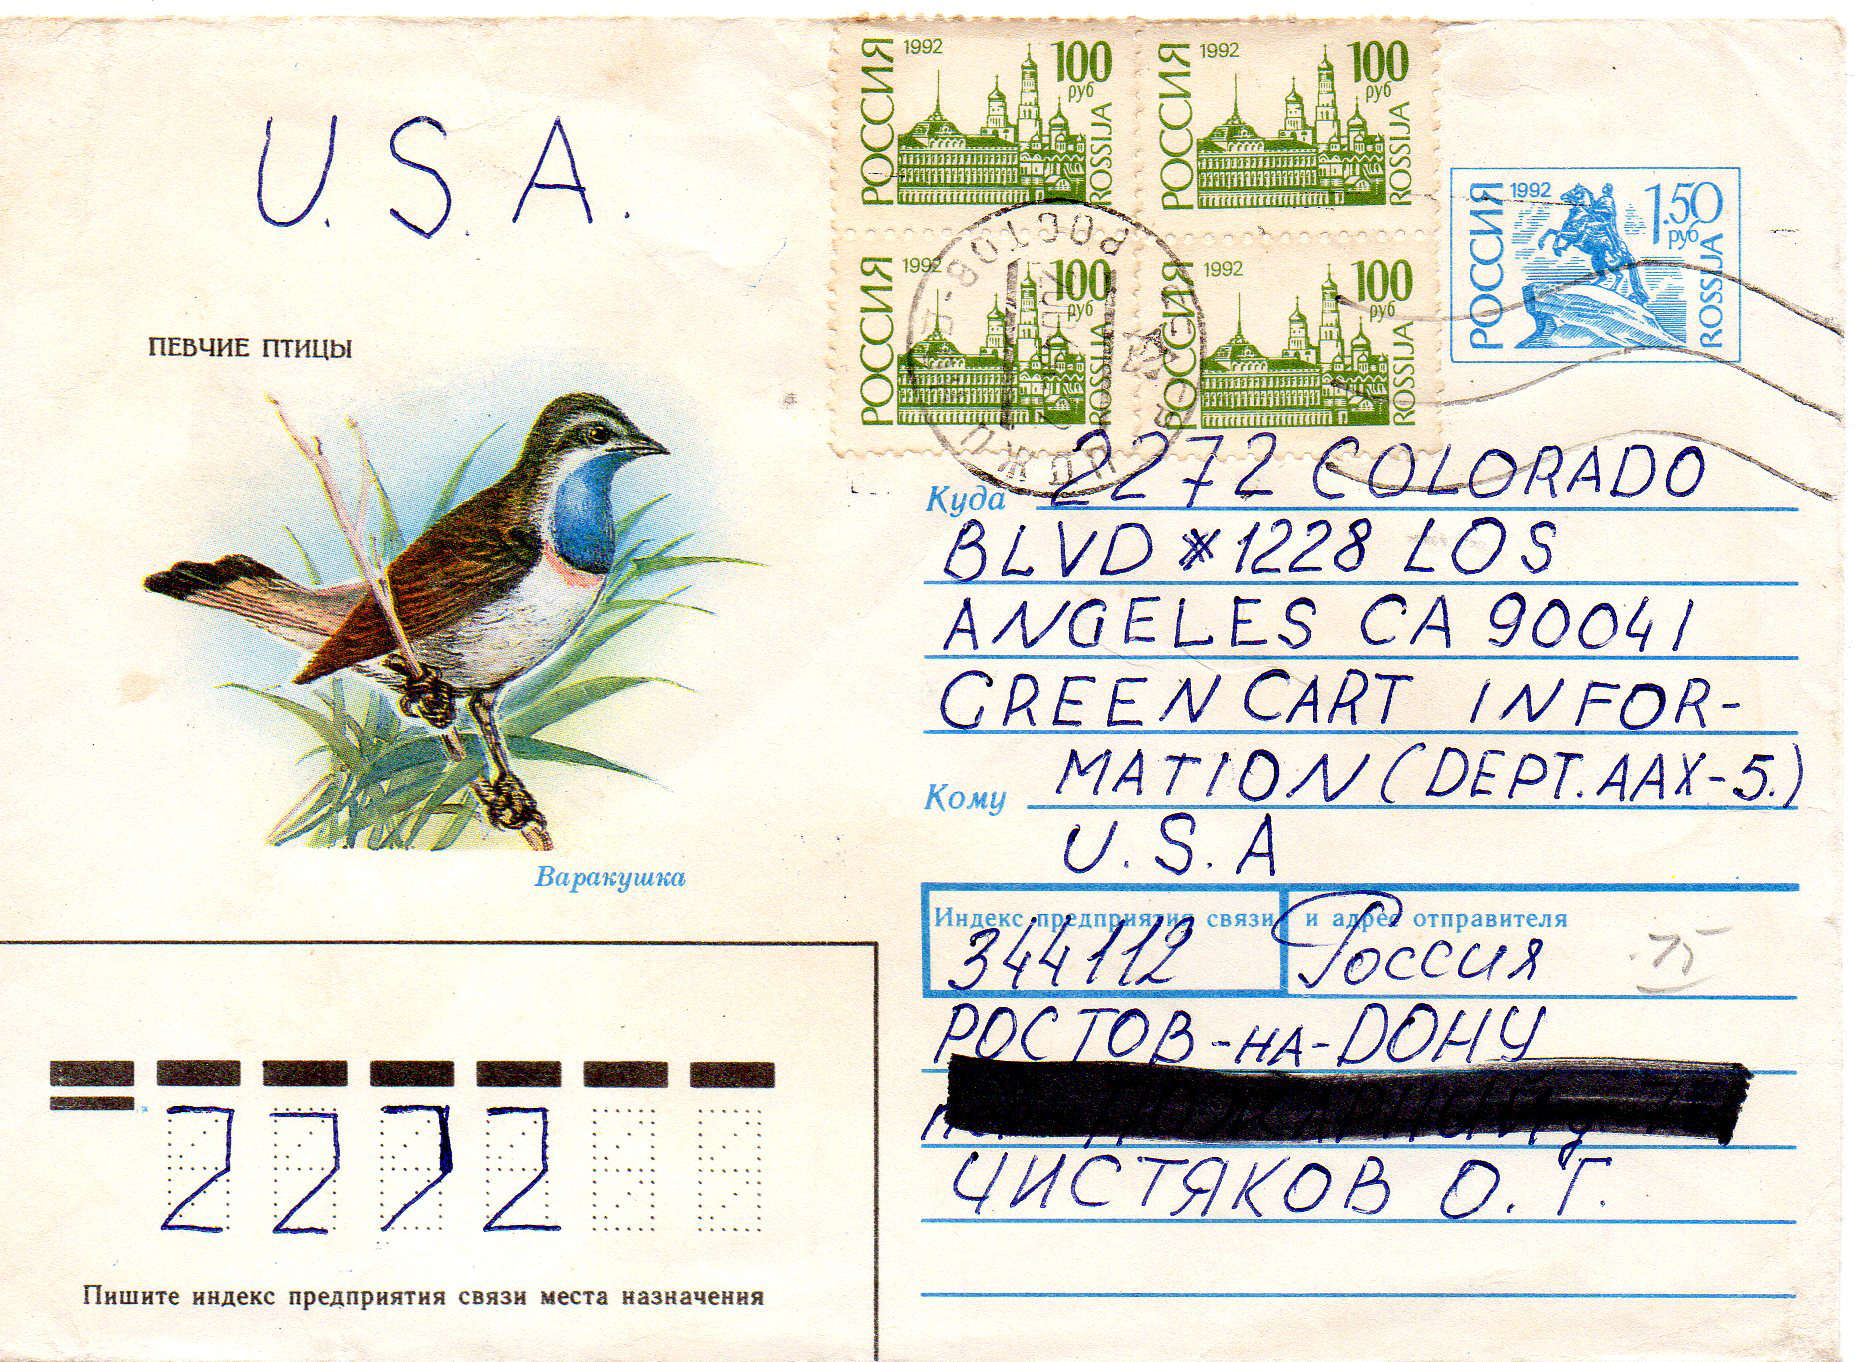 U.S.A.
РОССИЯ 1992 100 руб ROSSIJA
РОССИЯ 1992 100 руб ROSSIJA
РОССИЯ 1992 100 руб ROSSIJA
РОССИЯ 1992 100 руб ROSSIJA
РОССИЯ 1992 1.50 руб ROSSIJA
ПЕВЧИЕ ПТИЦЫ
Варакушка
Куда 2272 COLORADO
BLVD * 1228 LOS
ANGELES CA 90041
GREEN CART INFOR-
Кому MATION (DEPT. AAX-5.)
U.S.A
Индекс предприятия связи и адрес отправителя
344112 Россия
РОСТОВ-НА-ДОНУ
ЧИСТЯКОВ О. Г.
2272
Пишите индекс предприятия связи места назначения